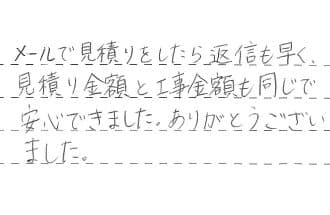 メールで見積りをしたら返信も早く、
見積り金額と工事金額も同じで
安心できました。ありがとうござい
ました。